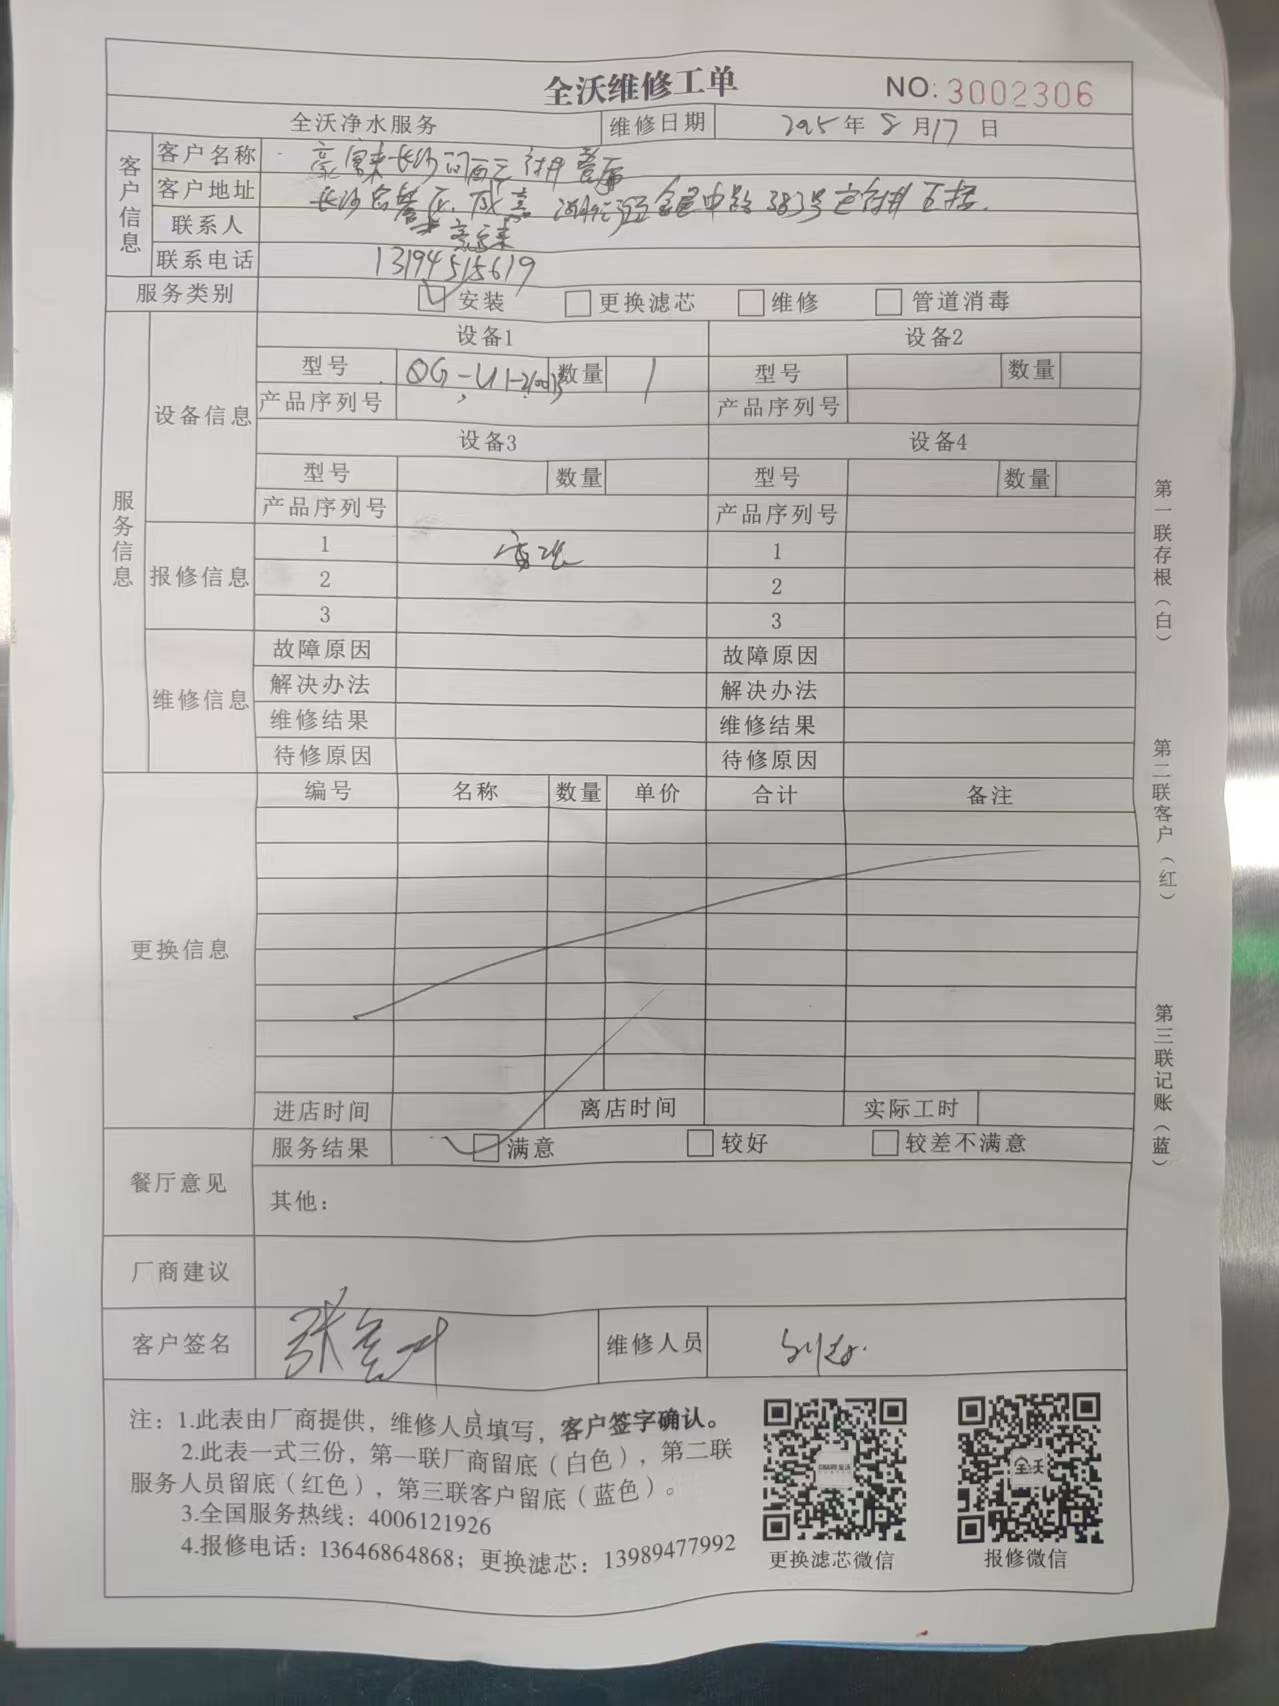 全沃维修工单 NO: 3002306
全沃净水服务 维修日期 2025年8月17日
客户信息
客户名称
客户地址 383号
联系人
联系电话 13194515619
服务类别 安装 更换滤芯 维修 管道消毒
服务信息
设备信息
设备1 设备2
型号 QG-U1- 数量 1 型号 数量
产品序列号 产品序列号
设备3 设备4
型号 数量 型号 数量
产品序列号 产品序列号
报修信息
1 安装 1
2 2
3 3
维修信息
故障原因 故障原因
解决办法 解决办法
维修结果 维修结果
待修原因 待修原因
更换信息
编号 名称 数量 单价 合计 备注
进店时间 离店时间 实际工时
餐厅意见
服务结果 满意 较好 较差不满意
其他：
厂商建议
客户签名 维修人员
注：1.此表由厂商提供，维修人员填写，客户签字确认。
2.此表一式三份，第一联厂商留底（白色），第二联
服务人员留底（红色），第三联客户留底（蓝色）。
3.全国服务热线：4006121926
4.报修电话：13646864868；更换滤芯：13989477992
全沃
更换滤芯微信 报修微信
第一联存根（白）
第二联客户（红）
第三联记账（蓝）